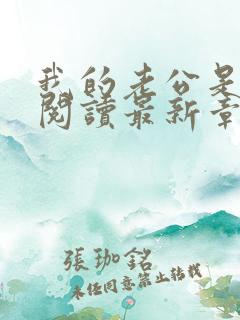 我的老公是
閱讀最新章
張珈銘
未经同意禁止转载